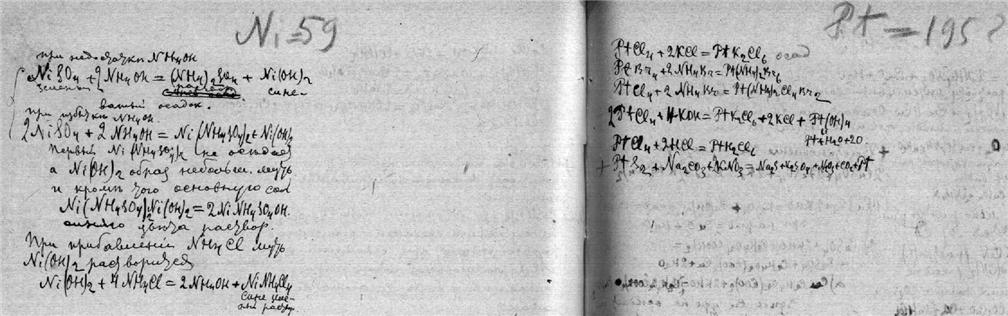 Ni=59
при недостачи NH4OH
NiSO4 + 2NH4OH = (NH4)2SO4 + Ni(OH)2
зелены сине-
ватый осадок.
при избытки NH4OH.
2NiSO4 + 2NH4OH = Ni(NH4SO4)2+Ni(OH)2
Первый Ni(NH4SO4)2 не осадок
а Ni(OH)2 образ небольш. муть
и кроме того основную сол
Ni(NH4SO4)2Ni(OH)2 = 2NiNH4SO4OH.
синяго цвѣта раствор
При прибавленiи NH4Cl муть
Ni(OH)2 растворяется
Ni(OH)2 + 4NH4Cl = 2NH4OH + NiNH4Cl4
сине зеле-
Pt = 195
PtCl4 + 2KCl = PtK2Cl6 осад
PtBr4 + 2NH4Br = Pt(NH4)2Br6
PtCl4 + 2NH4Br = Pt(NH4)2Cl4Br2
2PtCl4 + 4KOH = PtK2Cl6 + 2KCl + Pt(OH)4
Pt+H2O+2O.
PtCl4 + 2HCl = PtH2Cl6
+ PtS2 + Na2CO3 + KNO3 =